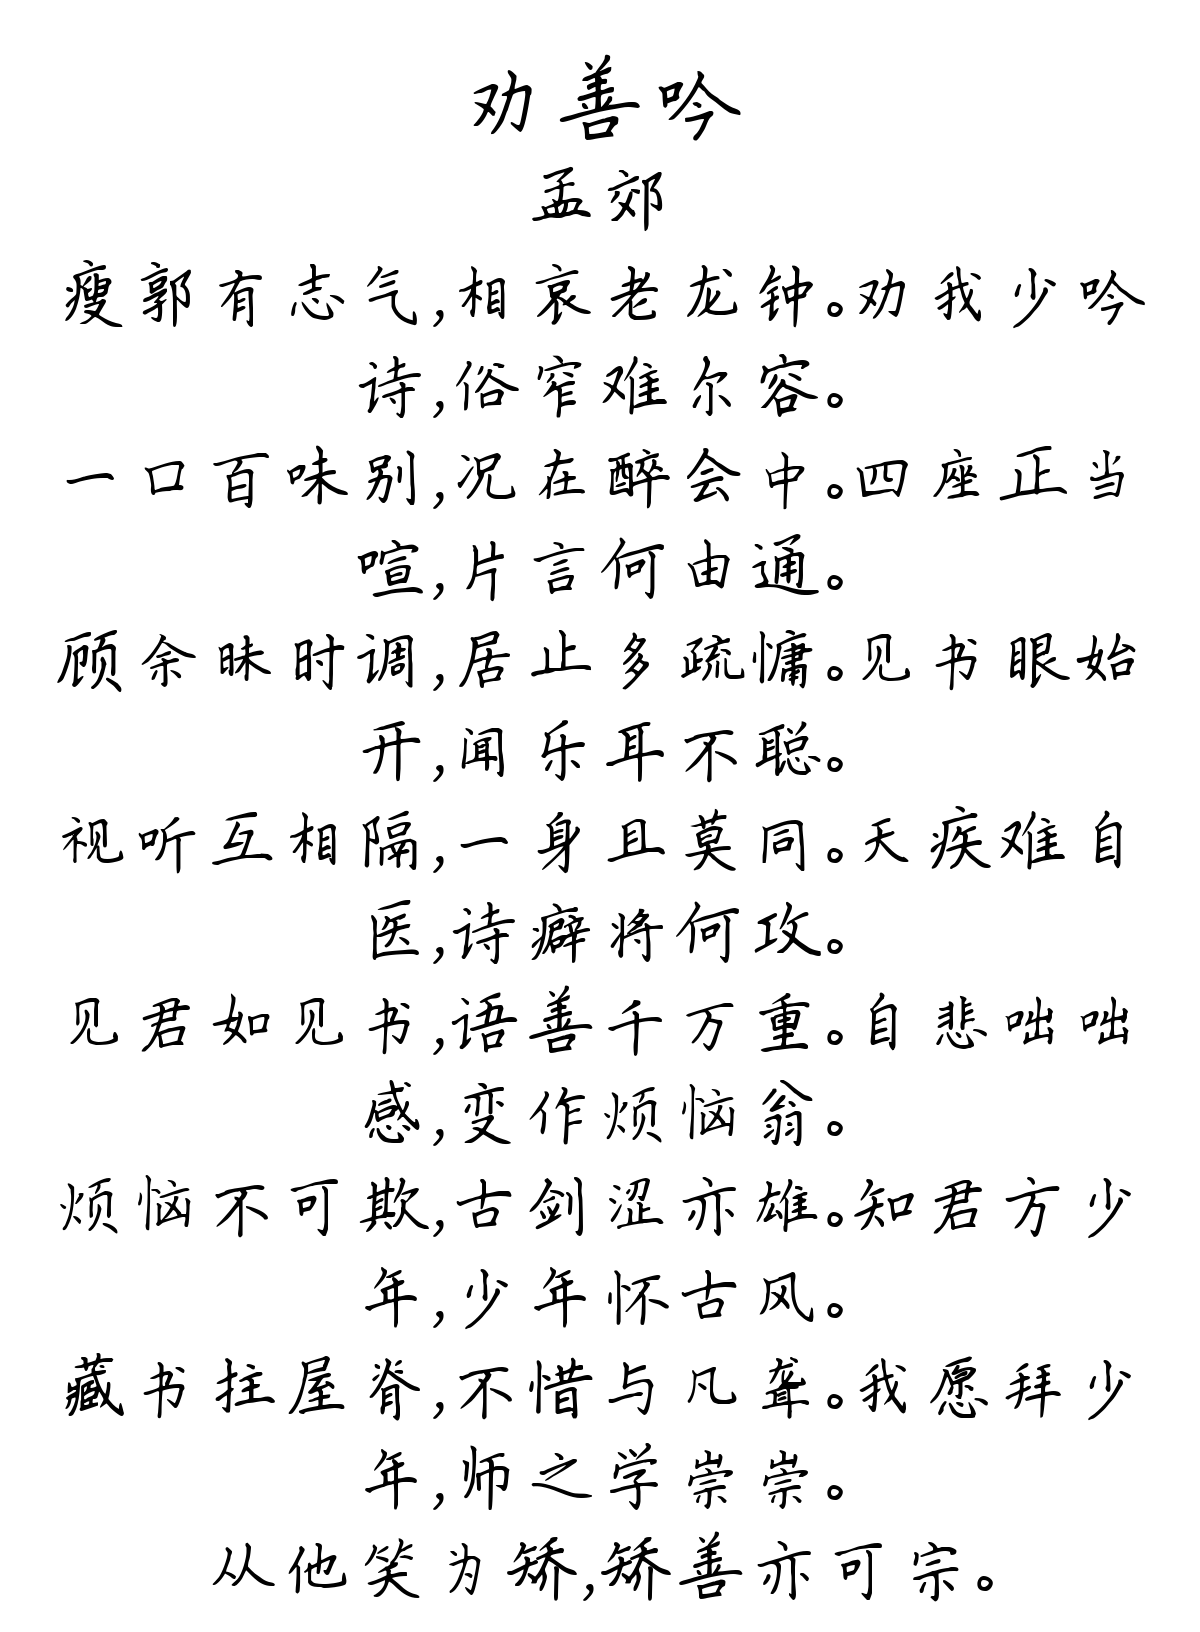 劝善吟
孟郊
瘦郭有志气,相哀老龙钟。劝我少吟
诗,俗窄难尔容。
一口百味别,况在醉会中。四座正当
喧,片言何由通。
顾余昧时调,居止多疏慵。见书眼始
开,闻乐耳不聪。
视听互相隔,一身且莫同。天疾难自
医,诗癖将何攻。
见君如见书,语善千万重。自悲咄咄
感,变作烦恼翁。
烦恼不可欺,古剑涩亦雄。知君方少
年,少年怀古风。
藏书拄屋脊,不惜与凡聋。我愿拜少
年,师之学崇崇。
从他笑为矫,矫善亦可宗。